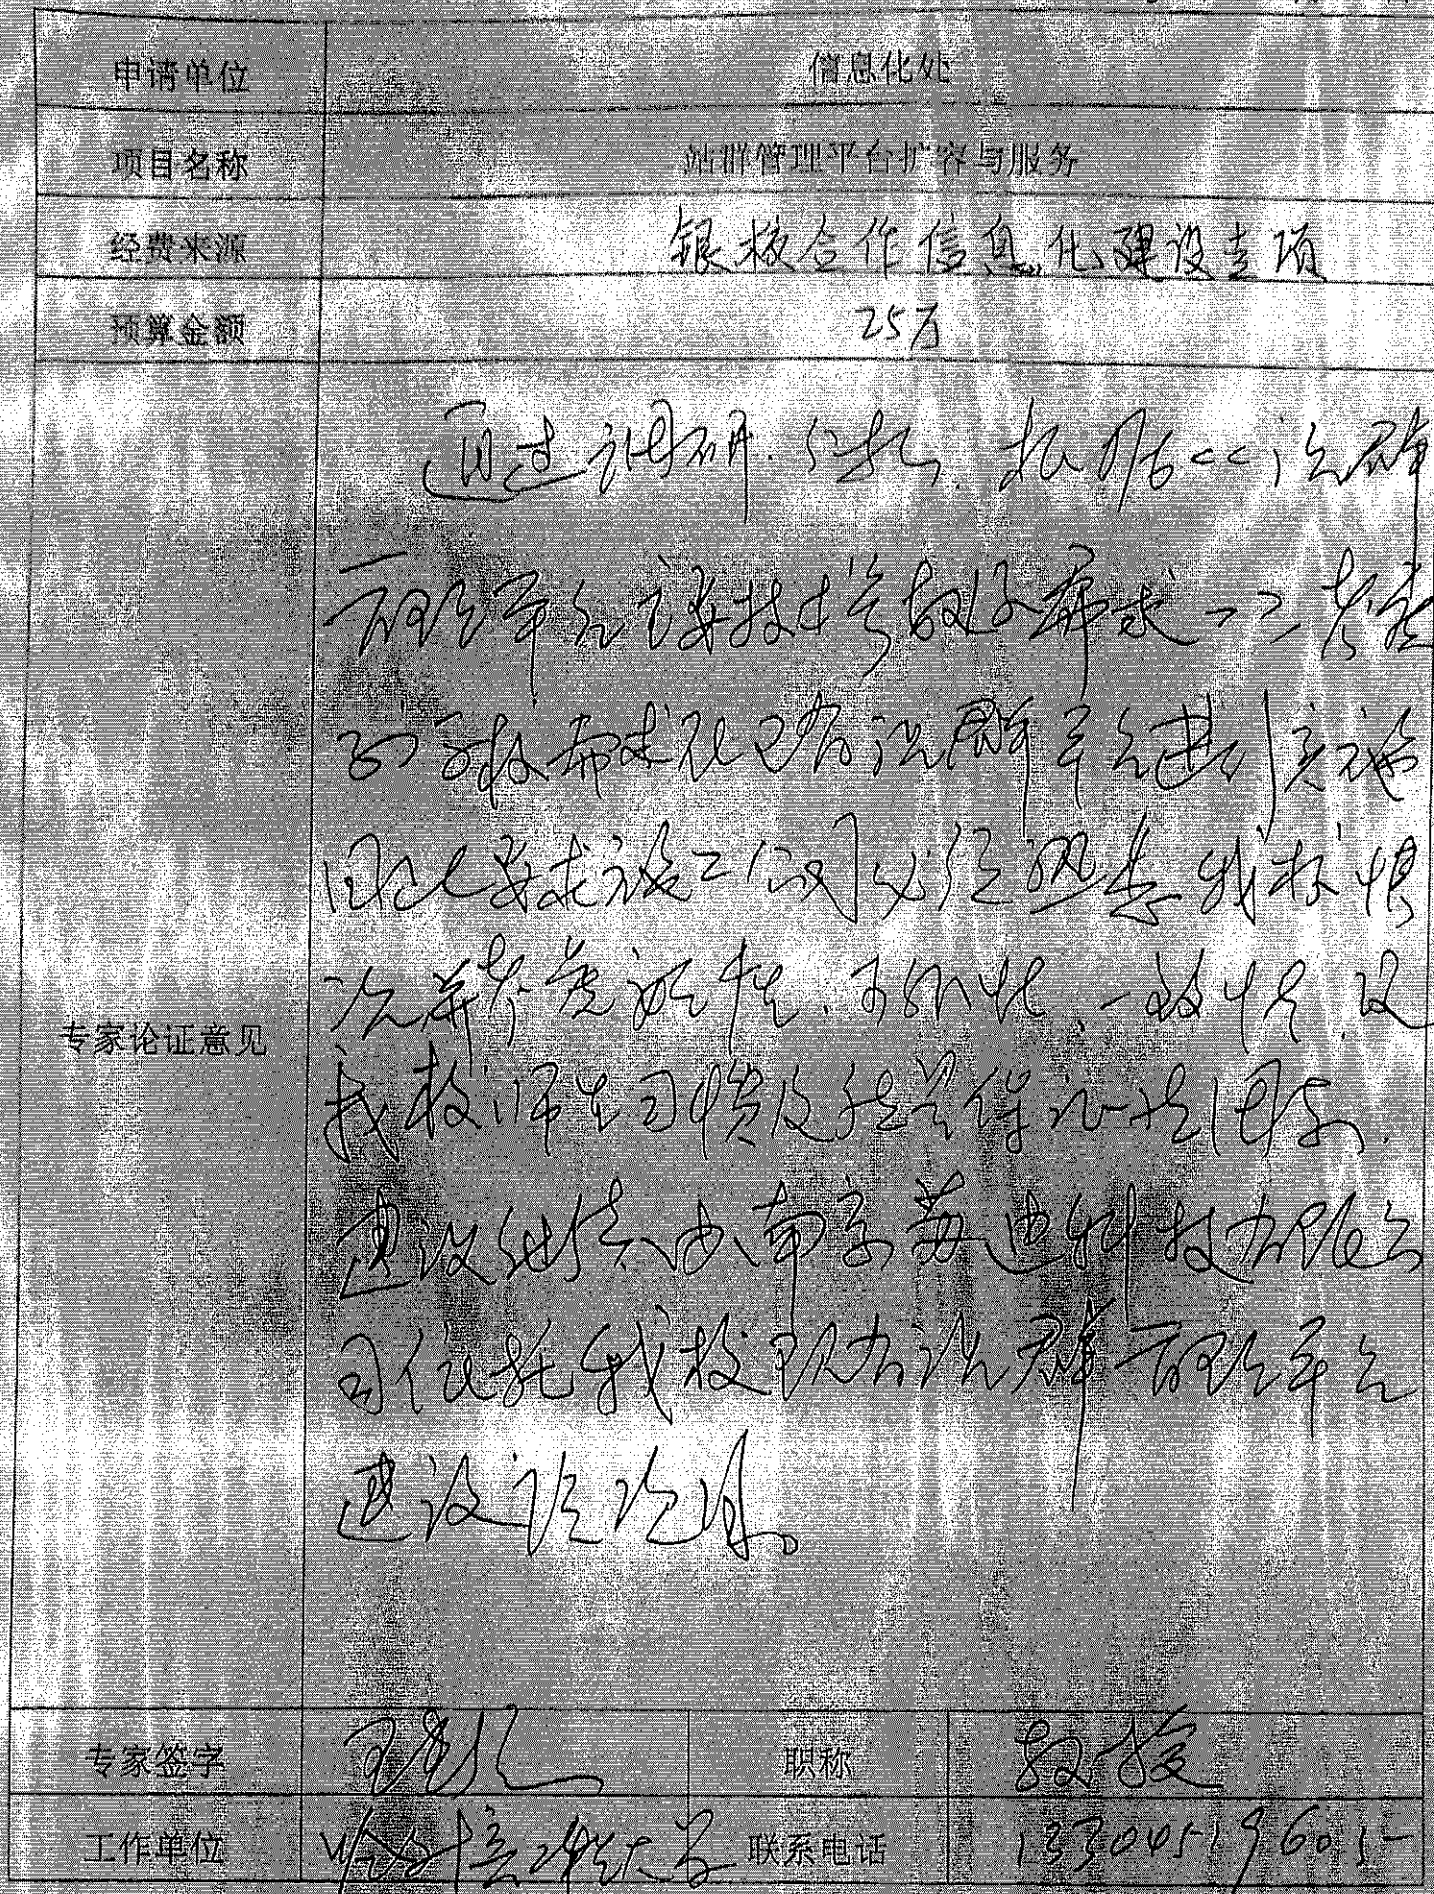 申请单位 信息化处
项目名称 站群管理平台扩容与服务
经费来源 银校合作信息化建设专项
预算金额 25万
专家论证意见
通过调研、分析、根据<<站群
管理平台 技术参数及需求>>、考虑
到 需求在已有站群平台进行实施
因此要求施工公司必须熟悉我校情
况 兼容性、可 性、一致性、及
我校师生习惯及 保证 因素、
建议继续由南京苏迪科技有限公
司依托我校现有站群管理平台
建设该项目。
专家签字 职称 教授
工作单位 哈尔滨 大学 联系电话 13304519601